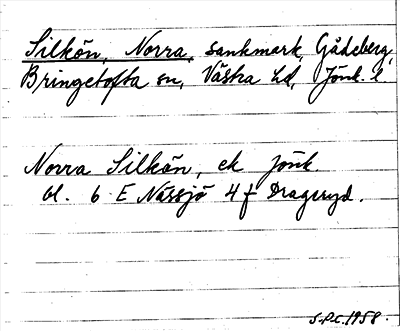 Silkön, Norra, sankmark, Gådeberg,
Bringetofta sn, Västra hd, Jönk. l.
Norra Silkön, ek Jönk
bl. 6 E Nässjö 4 f Drageryd.
S.P.C. 1958.